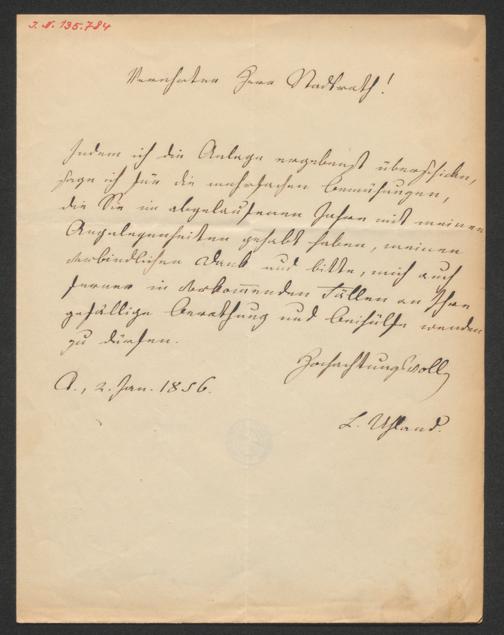 J. N. 135.784
Verehrter Herr Stadtrath!
Indem ich die Anlage ergebenst überschicke,
sage ich für die mehrfachen Bemühungen,
die Sie im abgelaufenen Jahre mit meinen
Angelegenheiten gehabt haben, meinen
verbindlichen Dank und bitte, mich auch
ferner in vorkommenden Fällen an Ihre
gefällige Berathung und Beihülfe wenden
zu dürfen.
Hochachtungsvoll
2. Jan. 1856.
L. Uhland.